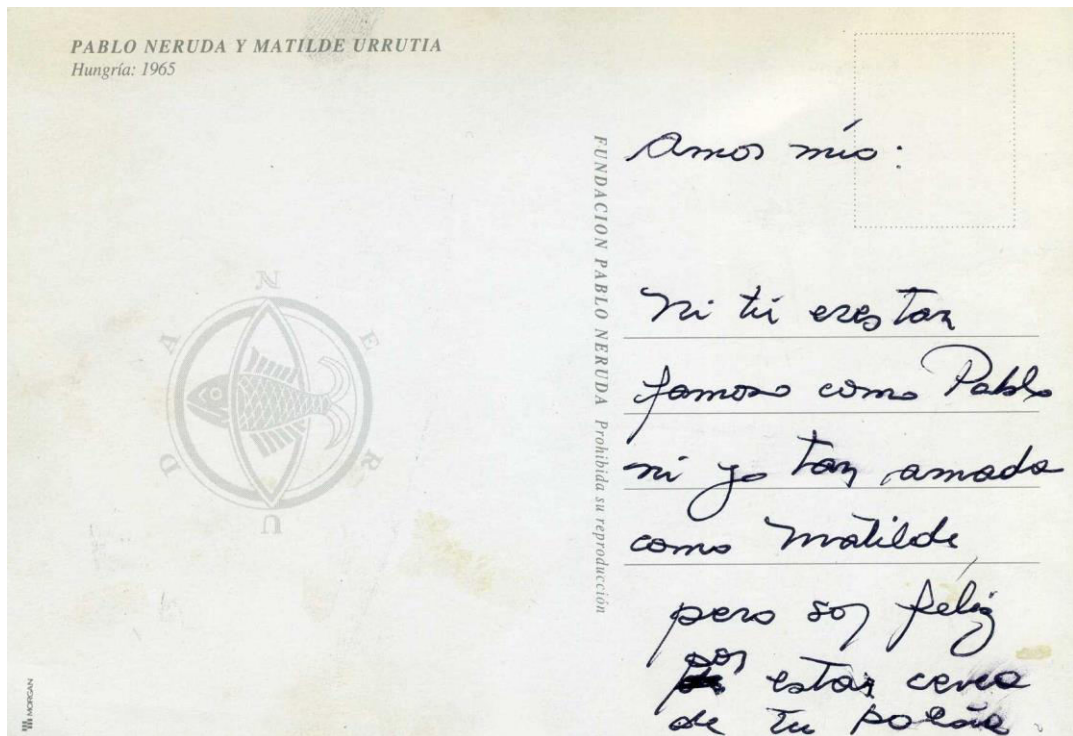 PABLO NERUDA Y MATILDE URRUTIA
Hungría: 1965
NERUDA
MORGAN
FUNDACION PABLO NERUDA Prohibida su reproducción
Amor mío:
Ni tú eres tan
famoso como Pablo
ni yo tan amada
como Matilde
pero soy féliz
por
estar cerca
de tu poesía